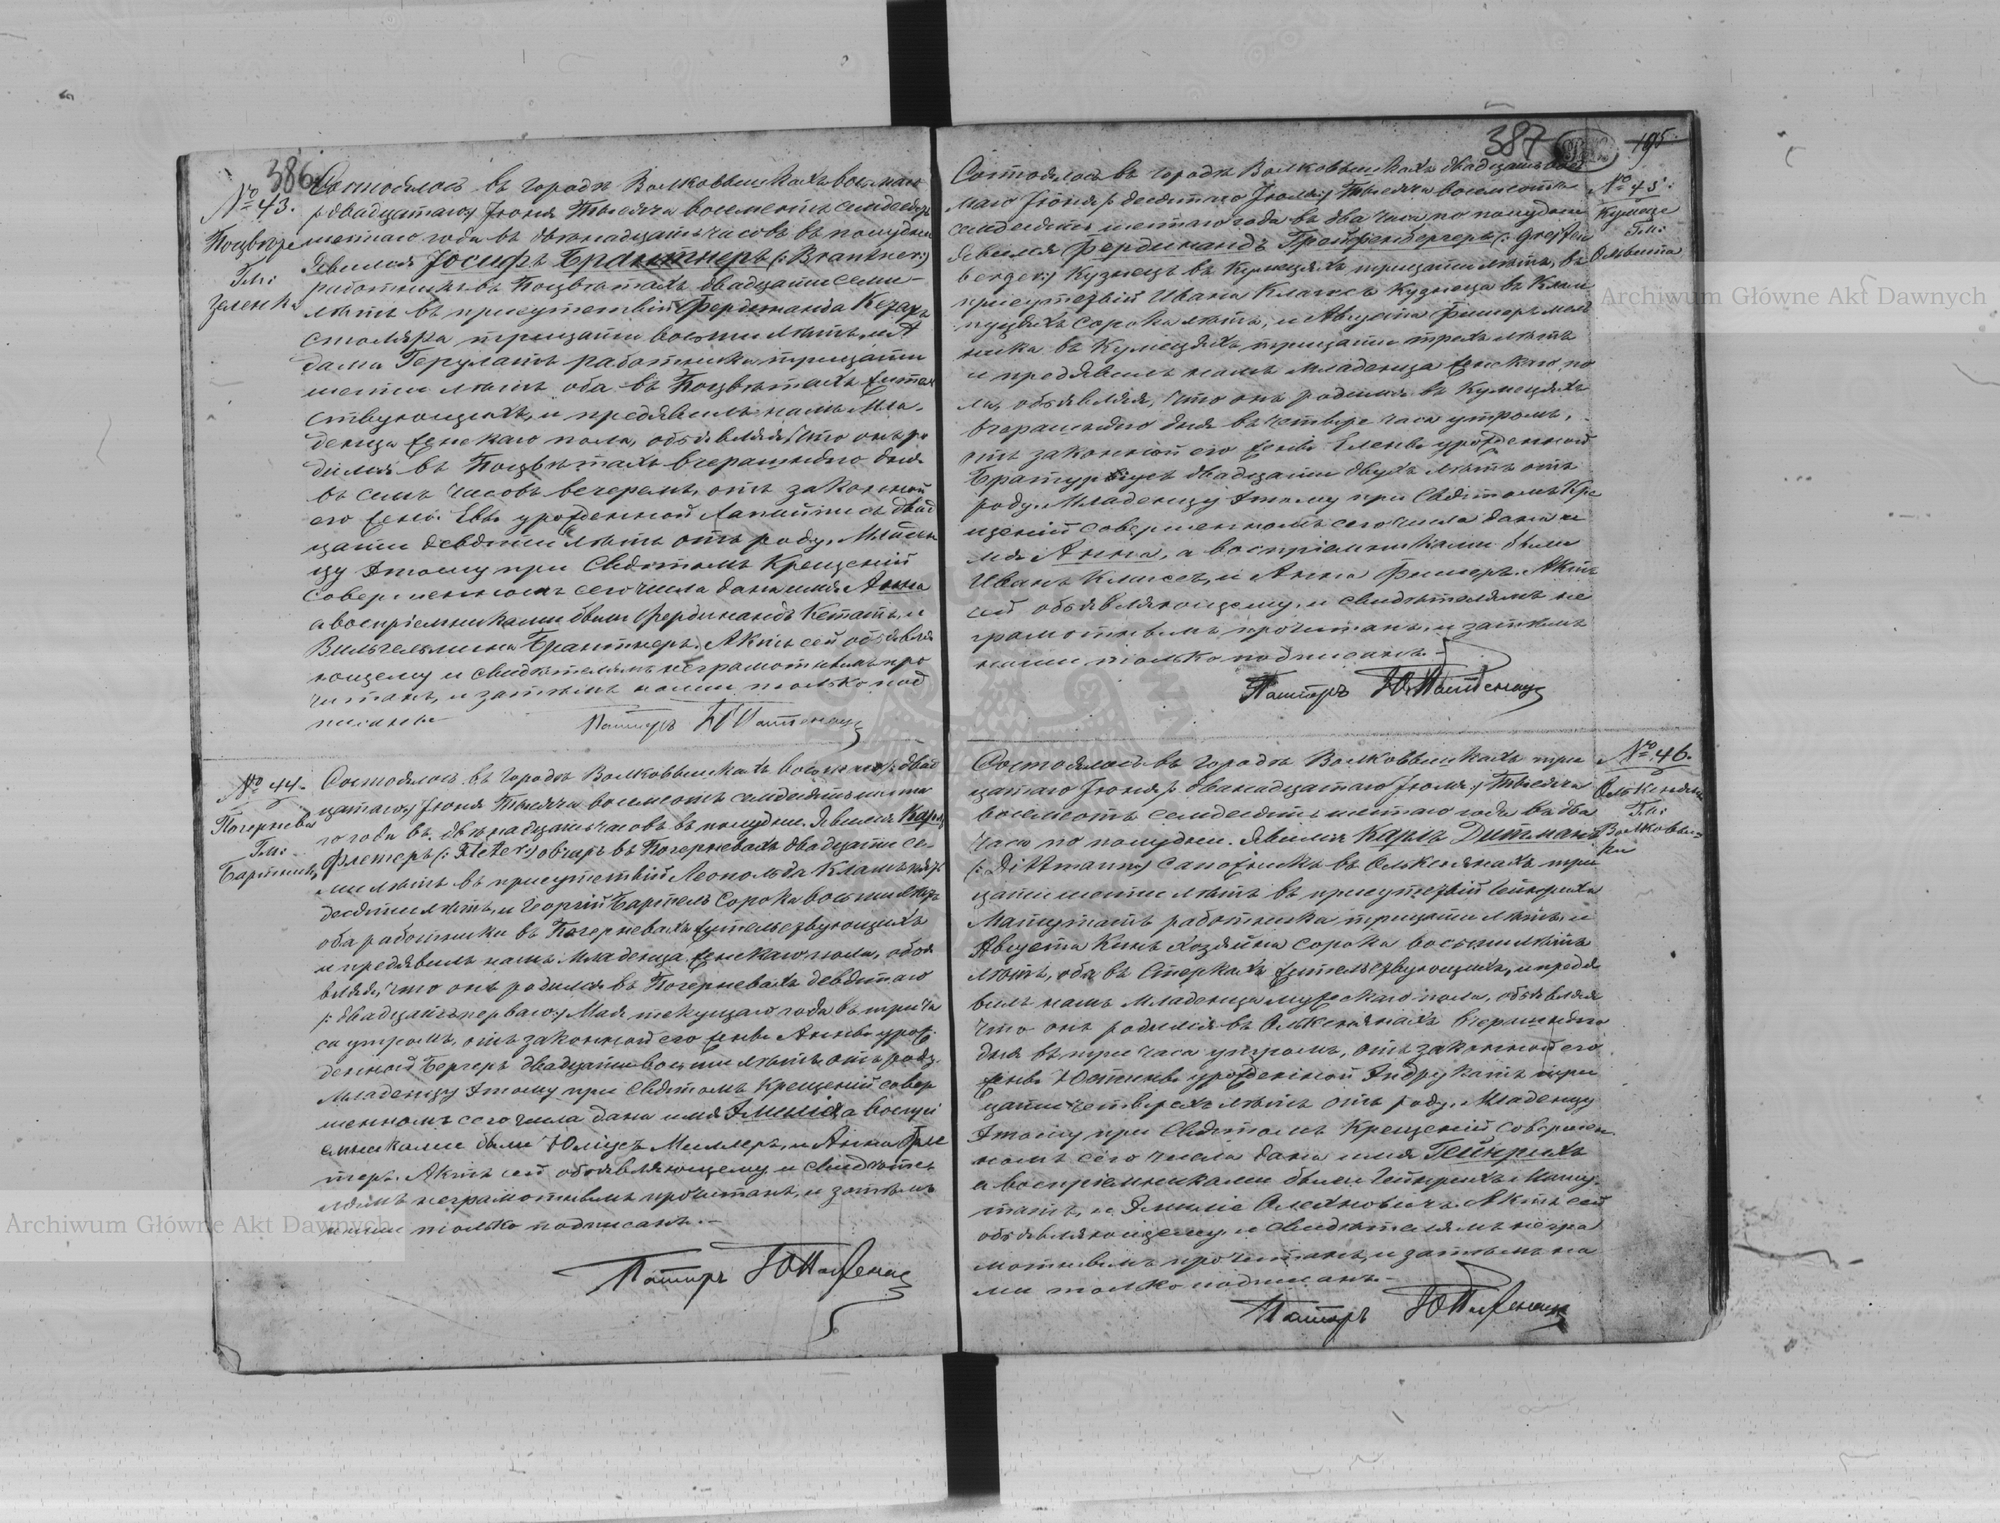 386
№ 43.
Поцвѣре
Гм:
Зеленка
Состоялось въ городѣ Волковышкахъ восьмаго
/: двадцатаго :/ Іюня Тысяча восемьсотъ семдесятъ
шестаго года въ двѣнадцать часовъ въ полудни
Явился Іосифъ Брантнеръ (: Brantner :)
работникъ въ Поцвѣтахъ двадцати семи
лѣтъ въ присутствіи Фердинанда
столяра тридцати восьми лѣтъ, и А
дама Герулатъ работника тридцати
шести лѣтъ оба въ Поцвѣтахъ жител
ствующихъ, и предъявилъ намъ Мла-
денца женскаго пола, объявляя, что онъ ро
дился въ Поцвѣтахъ вчерашняго дня
въ семь часовъ вечеромъ, отъ законной
его жены Евы урожденной двад
цати девяти лѣтъ отъ роду. Младен
цу этому при Святомъ Крещеніи
совершенномъ сего числа дано имя Анна
а воспріемниками были Фердинандъ Кетатъ, и
Вильгельмина Брантнеръ. Актъ сей объявля
ющему и свидѣтелямъ неграмотнымъ про
читанъ, и затѣмъ нами только под
писанъ.
Пасторъ
№ 44.
Погерневы
Гм:
Бартники
Состоялось въ городѣ Волковышкахъ восьмаго /: двад
цатаго :/ Іюня Тысяча восемьсотъ семдесятъ шеста
го года въ двѣнадцать часовъ въ полудни. Явился Карлъ
Флетеръ (: Fleter :) овчаръ въ Погерневахъ двадцати се-
ми лѣтъ въ присутствіи Леопольда
десяти лѣтъ, и Георгій Бартель сорока восьми лѣтъ
оба работники въ Погерневахъ жительствующихъ
и предъявилъ намъ Младенца женскаго пола, объя
вляя, что онъ родился въ Погерневахъ девятаго
/: двадцать перваго :/ Мая текущаго года въ три ча
са утромъ, отъ законной его жены Анны урож
денной Бергеръ двадцати восьми лѣтъ отъ роду.
Младенцу этому при Святомъ Крещеніи совер
шенномъ сего числа дано имя Эмилія, а воспрі
емниками были Юлiусъ Миллеръ, и Анна Фле
теръ. Актъ сей объявляющему и свидѣте
лямъ неграмотнымъ прочитанъ, и затѣмъ
нами только подписанъ.-
Пасторъ
387
195
№ 45.
Кумеце
Гм:
Ольвита
Состоялось въ городѣ Волковышкахъ двадцать вось
маго Іюня /: десятаго Іюля :/ Тысяча восемьсотъ
семдесятъ шестаго года въ два часа по полудни
Явился Фердинандъ Грейфенбергеръ (: Greifen
berger :) кузнецъ въ Кумецяхъ тридцати лѣтъ, въ
присутствіи Ивана Клагсъ кузнеца въ
сорока лѣтъ, и Августа Фишеръ
ника въ Кумецяхъ тридцати трехъ лѣтъ
и предъявилъ намъ младенца женскаго по
ла, объявляя, что онъ родился въ Кумецяхъ
вчерашняго дня въ четыре часа утромъ,
отъ законной его жены Елены урожденной
двадцати двухъ лѣтъ отъ
роду. Младенцу этому при Святомъ Кре
щеніи совершенномъ сего числа дано и
мя Анна, а воспріемниками были
Иванъ и Анна Фишеръ. Актъ
сей объявляющему, и свидѣтелямъ не
грамотнымъ прочитанъ, и затѣмъ
нами только подписанъ.-
Пасторъ
№ 46.
Гм:
Волковыш-
ки
Состоялось въ городѣ Волковышкахъ три
цатаго Іюня /: двѣнадцатаго Іюля :/ Тысяча
восемьсотъ семдесятъ шестаго года въ два
часа по полудни. Явился Карлъ Дитманъ
(: Dittmann :) сапожникъ въ три
цати шести лѣтъ въ присутствіи Гейнриха
Матутатъ работника тридцати лѣтъ, и
Августа Кинъ хозяина сорока восьми лѣтъ
лѣтъ, оба въ жительствующихъ, и предъя
вилъ намъ младенца мужескаго пола, объявляя
что онъ родился въ вчерашняго
дня въ три часа утромъ, отъ законной его
жены Юстины урожденной Андрукатъ три
цати четырехъ лѣтъ отъ роду. Младенцу
этому при Святомъ Крещеніи совершен
номъ сего числа дано имя Гейнрихъ
а воспріемниками были Гейнрихъ Мату-
татъ, и Эмилiе Актъ сей
объявляющему и свидѣтелямъ негра
мотнымъ прочитанъ, и затѣмъ на
ми только подписанъ.-
Пасторъ
Archiwum Główne Akt Dawnych
Archiwum Główne Akt Dawnych